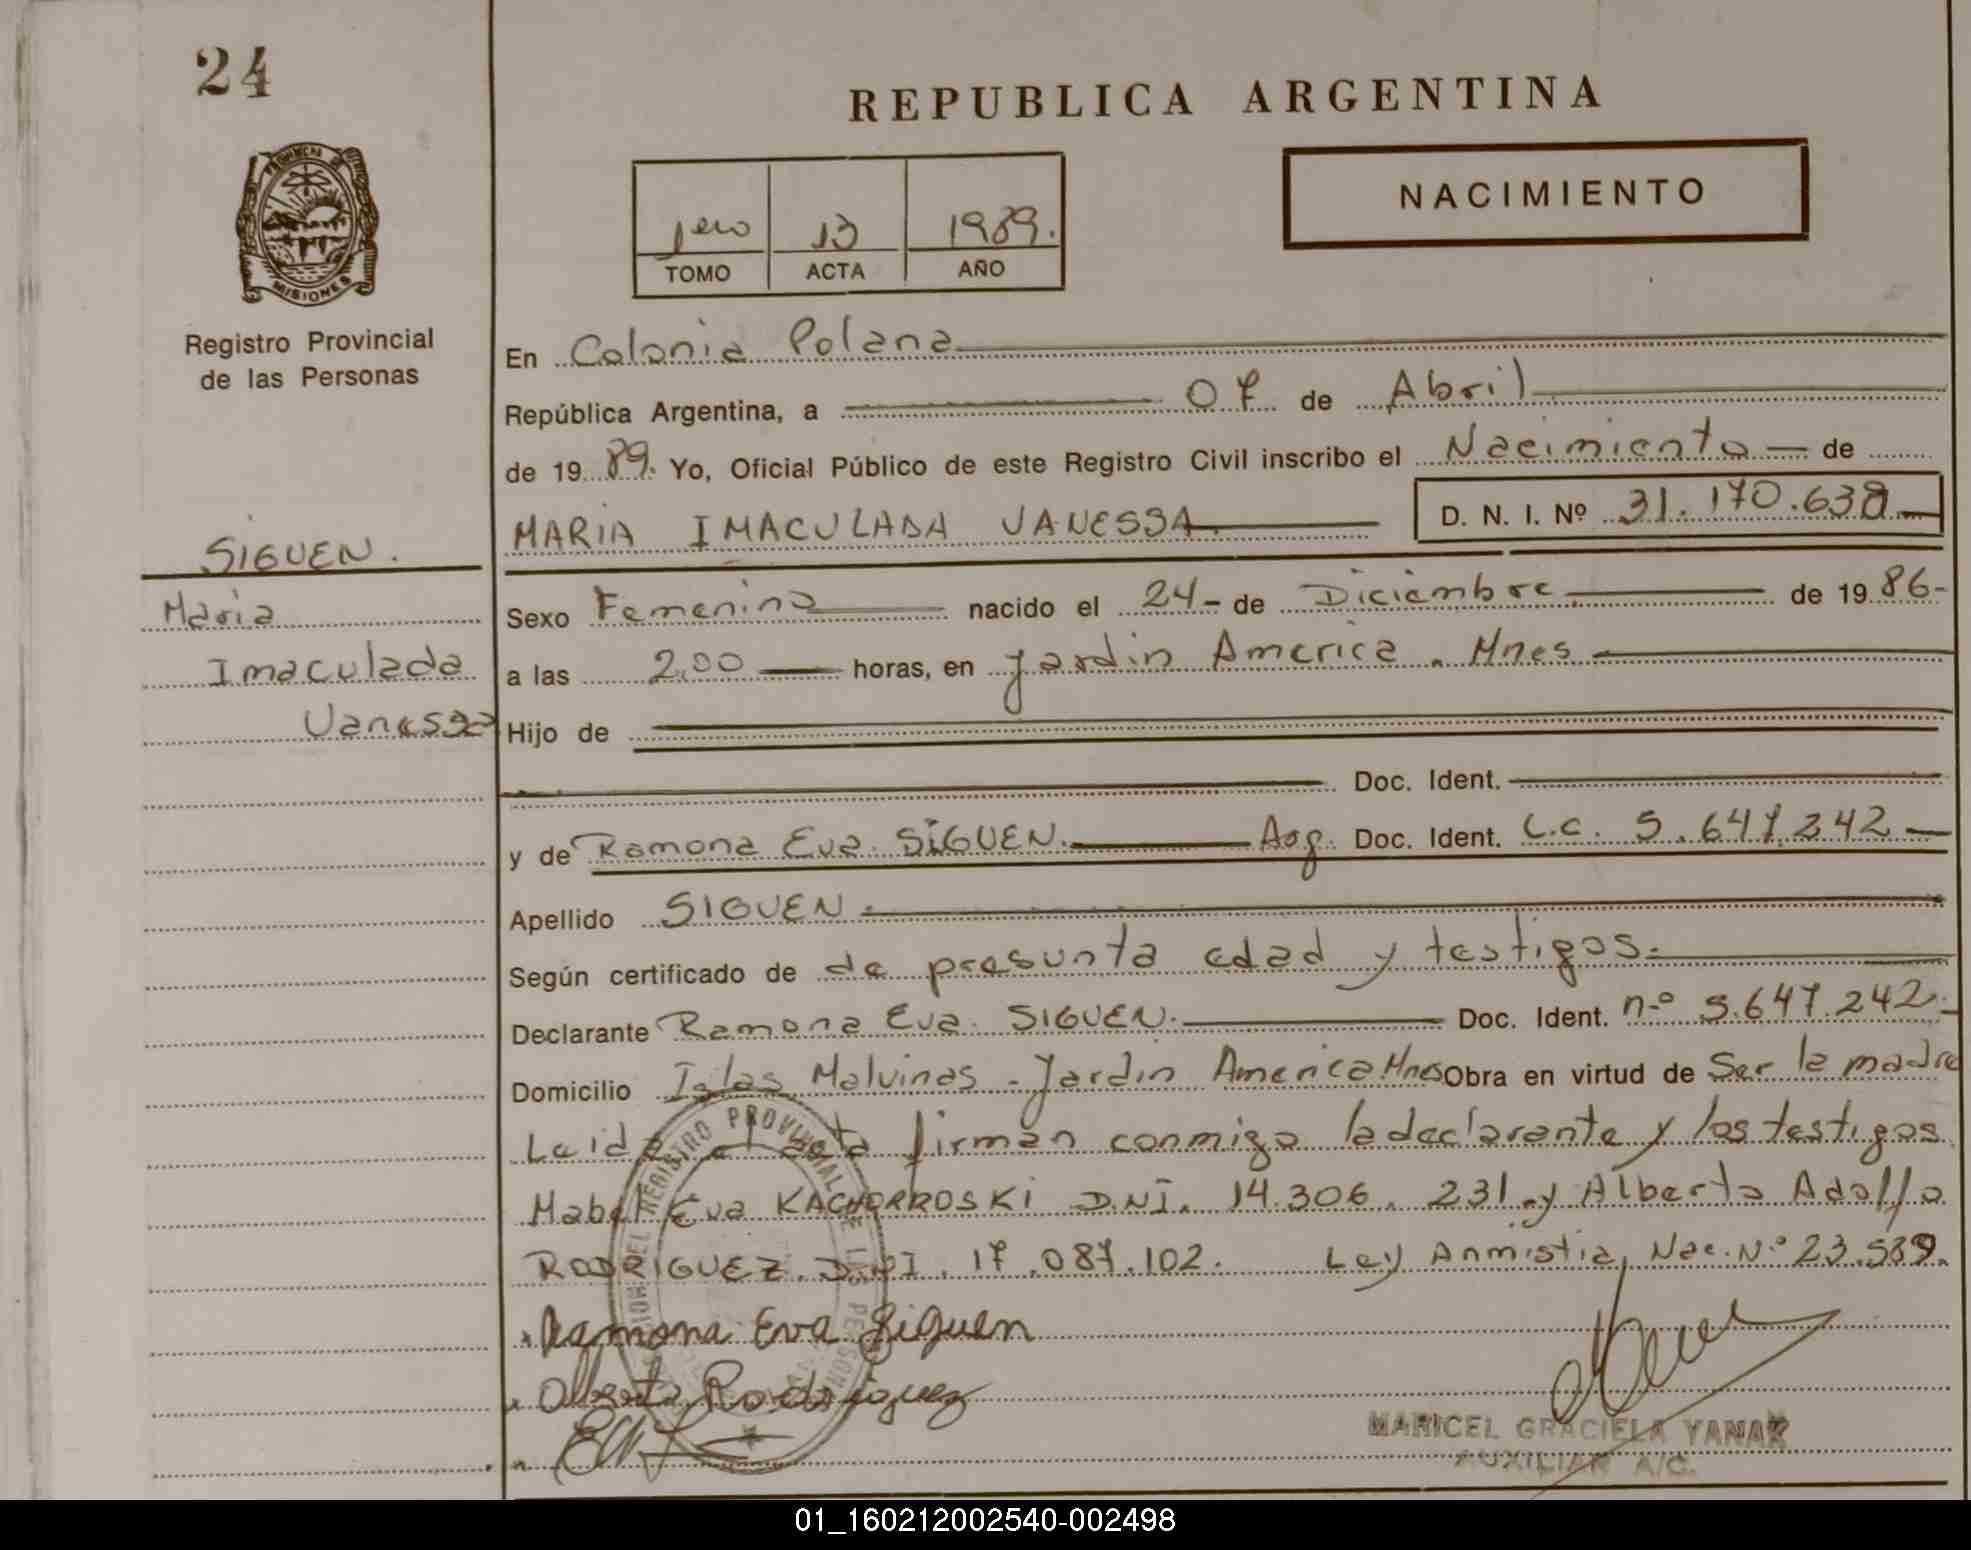 24
REPUBLICA ARGENTINA
NACIMIENTO
1ero 13 1989.
TOMO ACTA AÑO
PROVINCIA DE
MISIONES
Registro Provincial
de las Personas
En Colonia Polana
República Argentina, a 07 de Abril
de 19 89. Yo, Oficial Público de este Registro Civil inscribo el Nacimiento de
MARIA IMACULADA VANESSA. D. N. I. Nº 31.170.638
SIGUEN.
Maria
Imaculada
Vanessa
Sexo Femenino nacido el 24 - de Diciembre de 19 86 -
a las 2,00 horas, en Jardin America. Mnes
Hijo de
Doc. Ident.
y de Ramona Eva SIGUEN. Arg. Doc. Ident. L.C. 5.647.242
Apellido SIGUEN.
Según certificado de de presunta edad y testigos.
Declarante Ramona Eva SIGUEN. Doc. Ident. nº 5.647.242.
Domicilio Islas Malvinas - Jardin America Mnes Obra en virtud de Ser la madre
Leida el acta firman conmigo la declarante y los testigos
Mabel Eva KACHORROSKI D.N.I. 14.306.231 y Alberto Adolfo
RODRIGUEZ. D.N.I. 17.087.102. Ley Anmistia, Nac. Nº 23.539.
Ramona Eva Siguen
Alberto Rodriguez
REGISTRO PROVINCIAL DE LAS PERSONAS
MARICEL GRACIELA YANAK
AUXILIAR A/C.
01_160212002540-002498